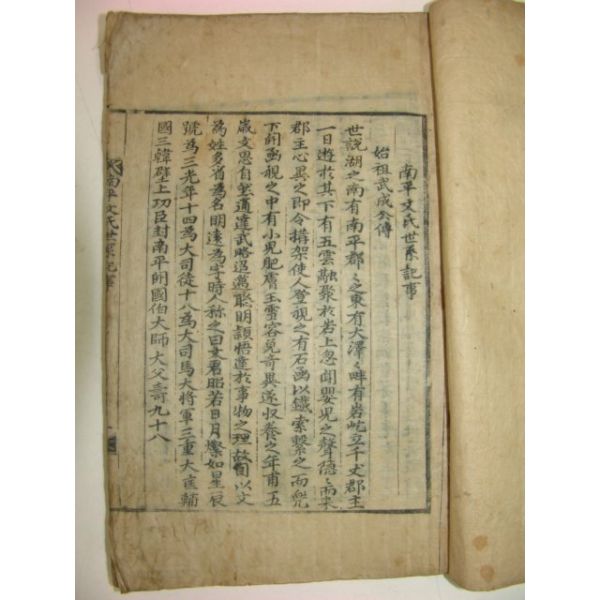 南平文氏世系記事
始祖武成公傳
世說湖之南有南平郡〻之東有大澤〻畔有岩屹立千丈郡主
一日遊於其下有五雲融聚於岩上忽聞嬰児之聲隱〻而来
郡主心異之即令搆架使人登視之有石函以鐵索繫之而兠
下開函視之中有小児肥膚玉雪容皃奇異遂収養之年甫五
歳文思自然通達武略超邁聡明頴悟達於事物之理故因以文
為姓多省為名明遠為字時人称之曰文君昭若日月燦如星辰
號為三光年十四為大司徒十八為大司馬大将軍三重大匡輔
國三韓壁上功臣封南平開國伯大師大父壽九十八
南平文氏世系記事